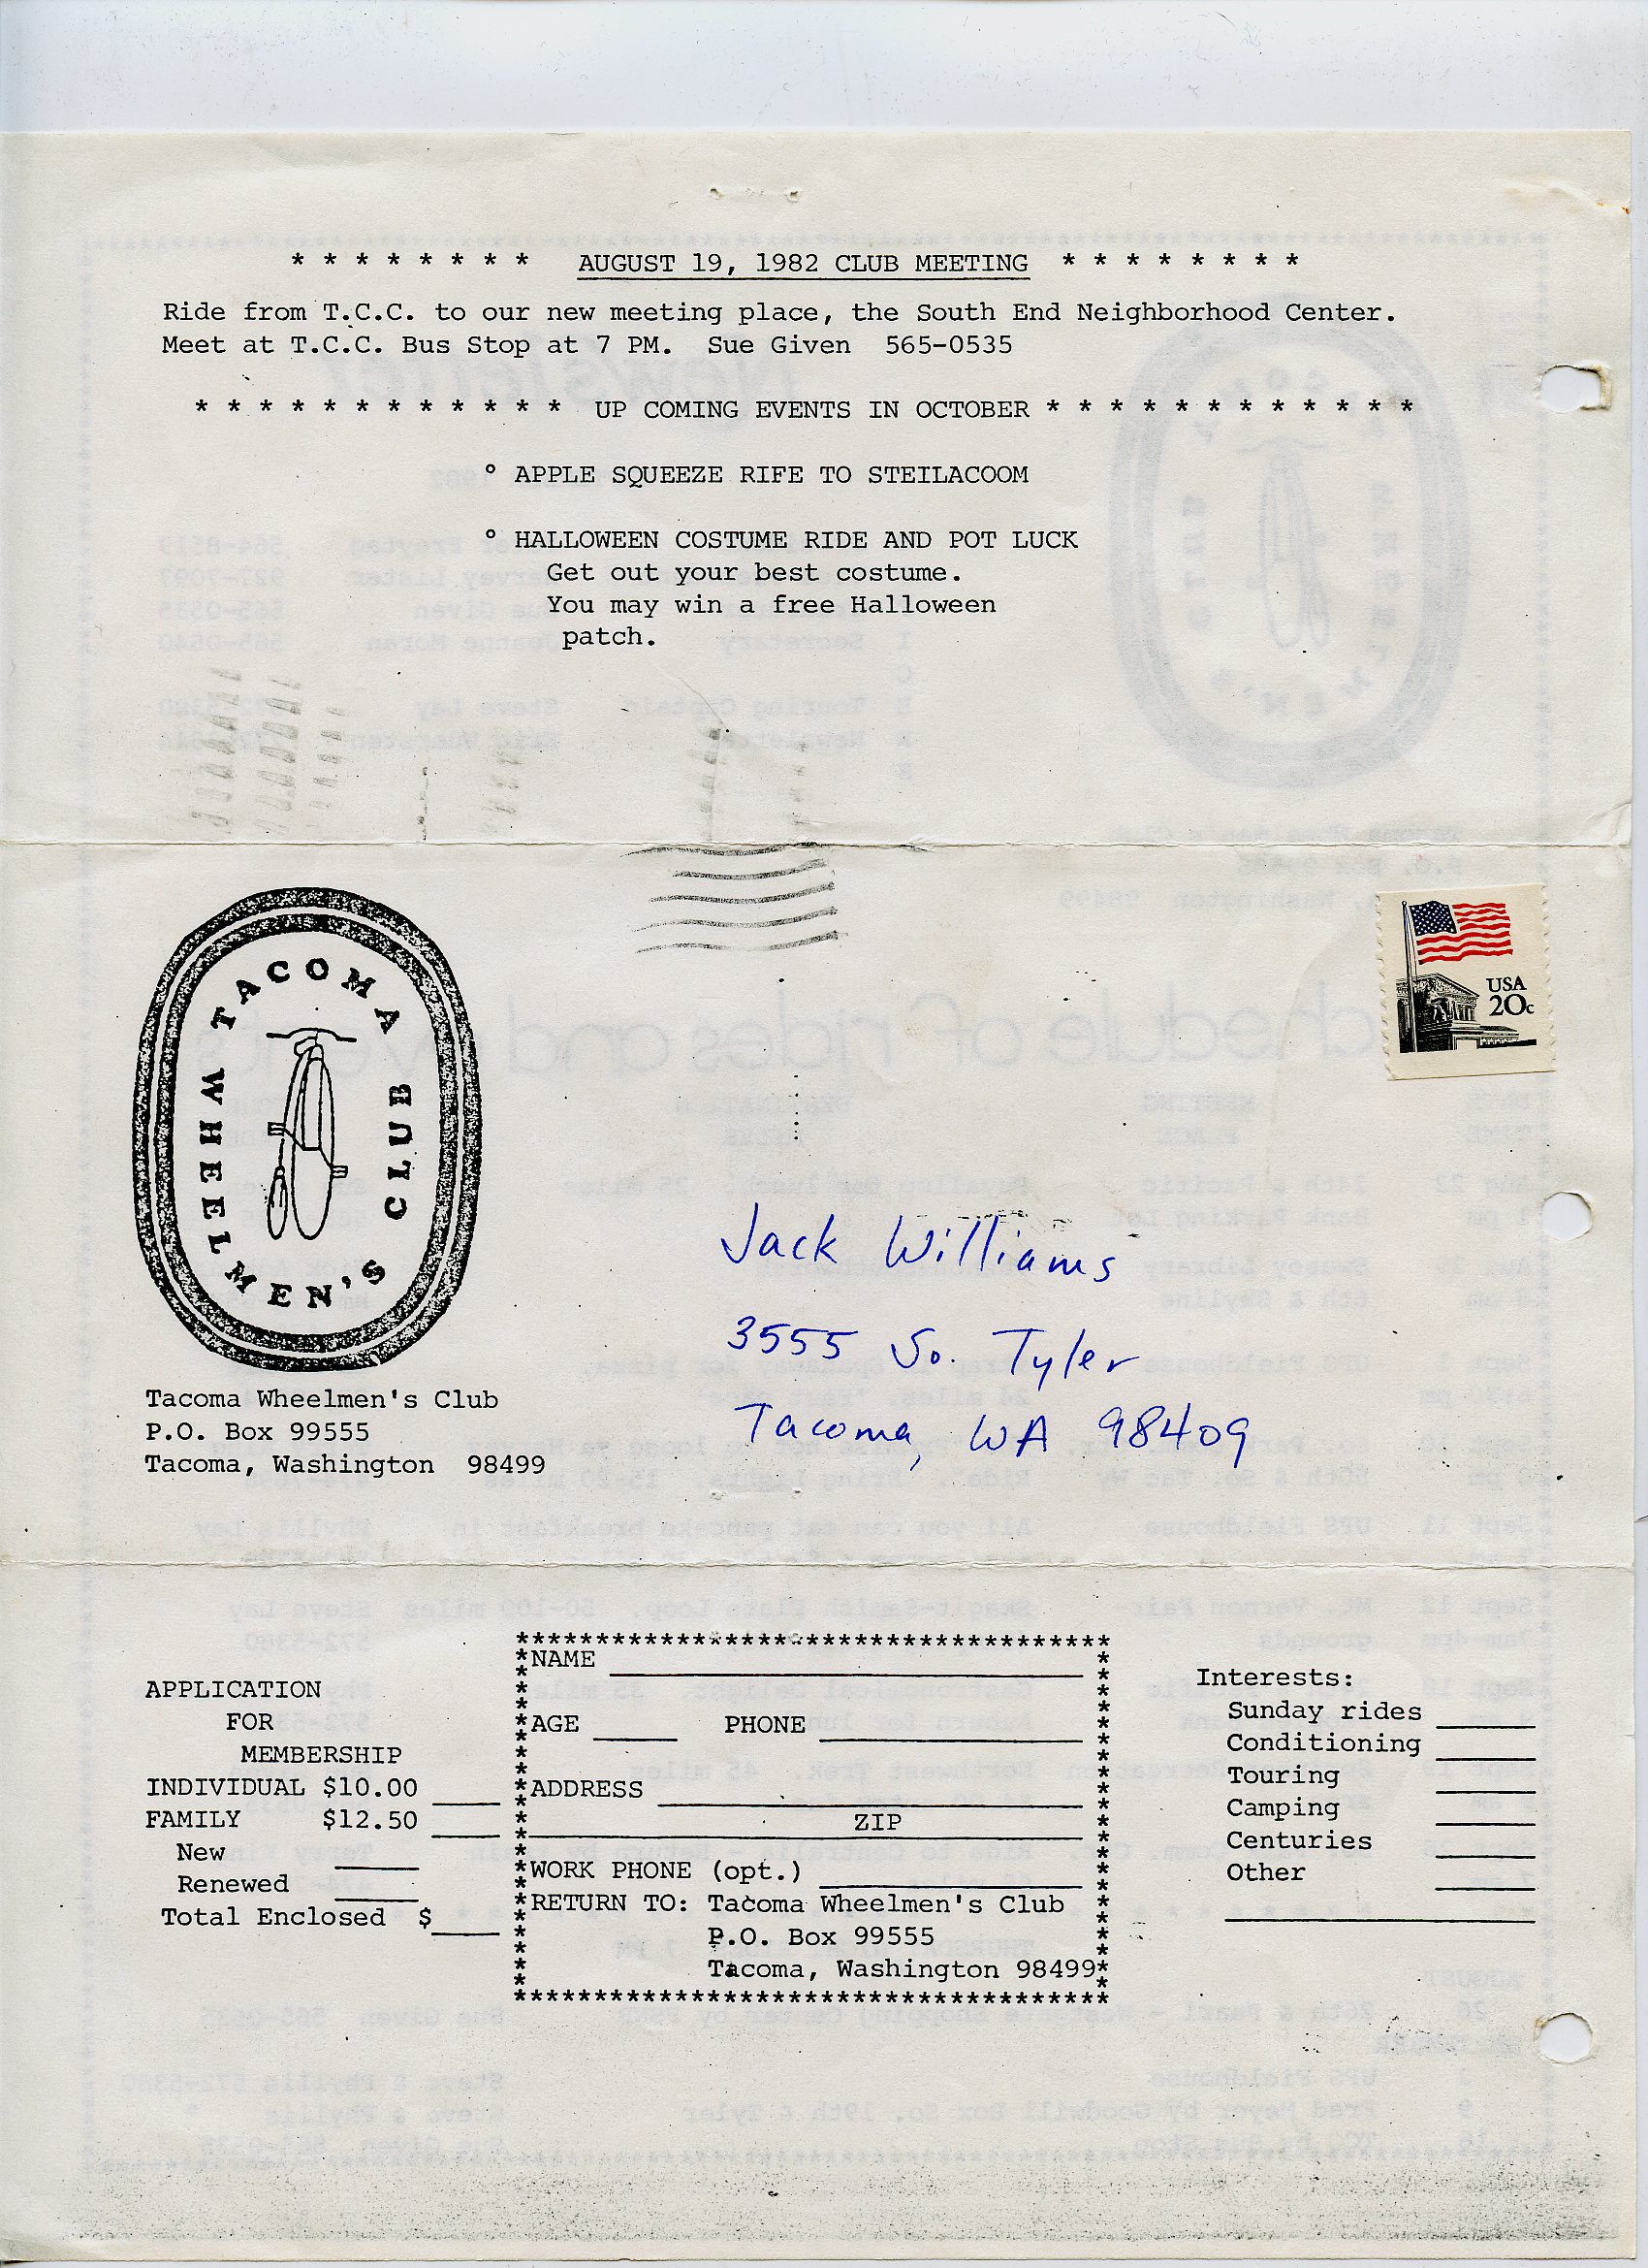 * * * * * * * * AUGUST 19, 1982 CLUB MEETING * * * * * * * *
Ride from T.C.C. to our new meeting place, the South End Neighborhood Center.
Meet at T.C.C. Bus Stop at 7 PM. Sue Given 565-0535
* * * * * * * * * * * * UP COMING EVENTS IN OCTOBER * * * * * * * * * * * *
° APPLE SQUEEZE RIFE TO STEILACOOM
° HALLOWEEN COSTUME RIDE AND POT LUCK
Get out your best costume.
You may win a free Halloween
patch.
TACOMA WHEELMEN'S CLUB
USA
20c
Tacoma Wheelmen's Club
P.O. Box 99555
Tacoma, Washington 98499
Jack Williams
3555 So. Tyler
Tacoma, WA 98409
APPLICATION
FOR
MEMBERSHIP
INDIVIDUAL $10.00 ____
FAMILY $12.50 ____
New ____
Renewed ____
Total Enclosed $____
*************************************
NAME ____
AGE ____ PHONE ____
ADDRESS ____
ZIP
WORK PHONE (opt.) ____
RETURN TO: Tacoma Wheelmen's Club
P.O. Box 99555
Tacoma, Washington 98499
*************************************
Interests:
Sunday rides ____
Conditioning ____
Touring ____
Camping ____
Centuries ____
Other ____